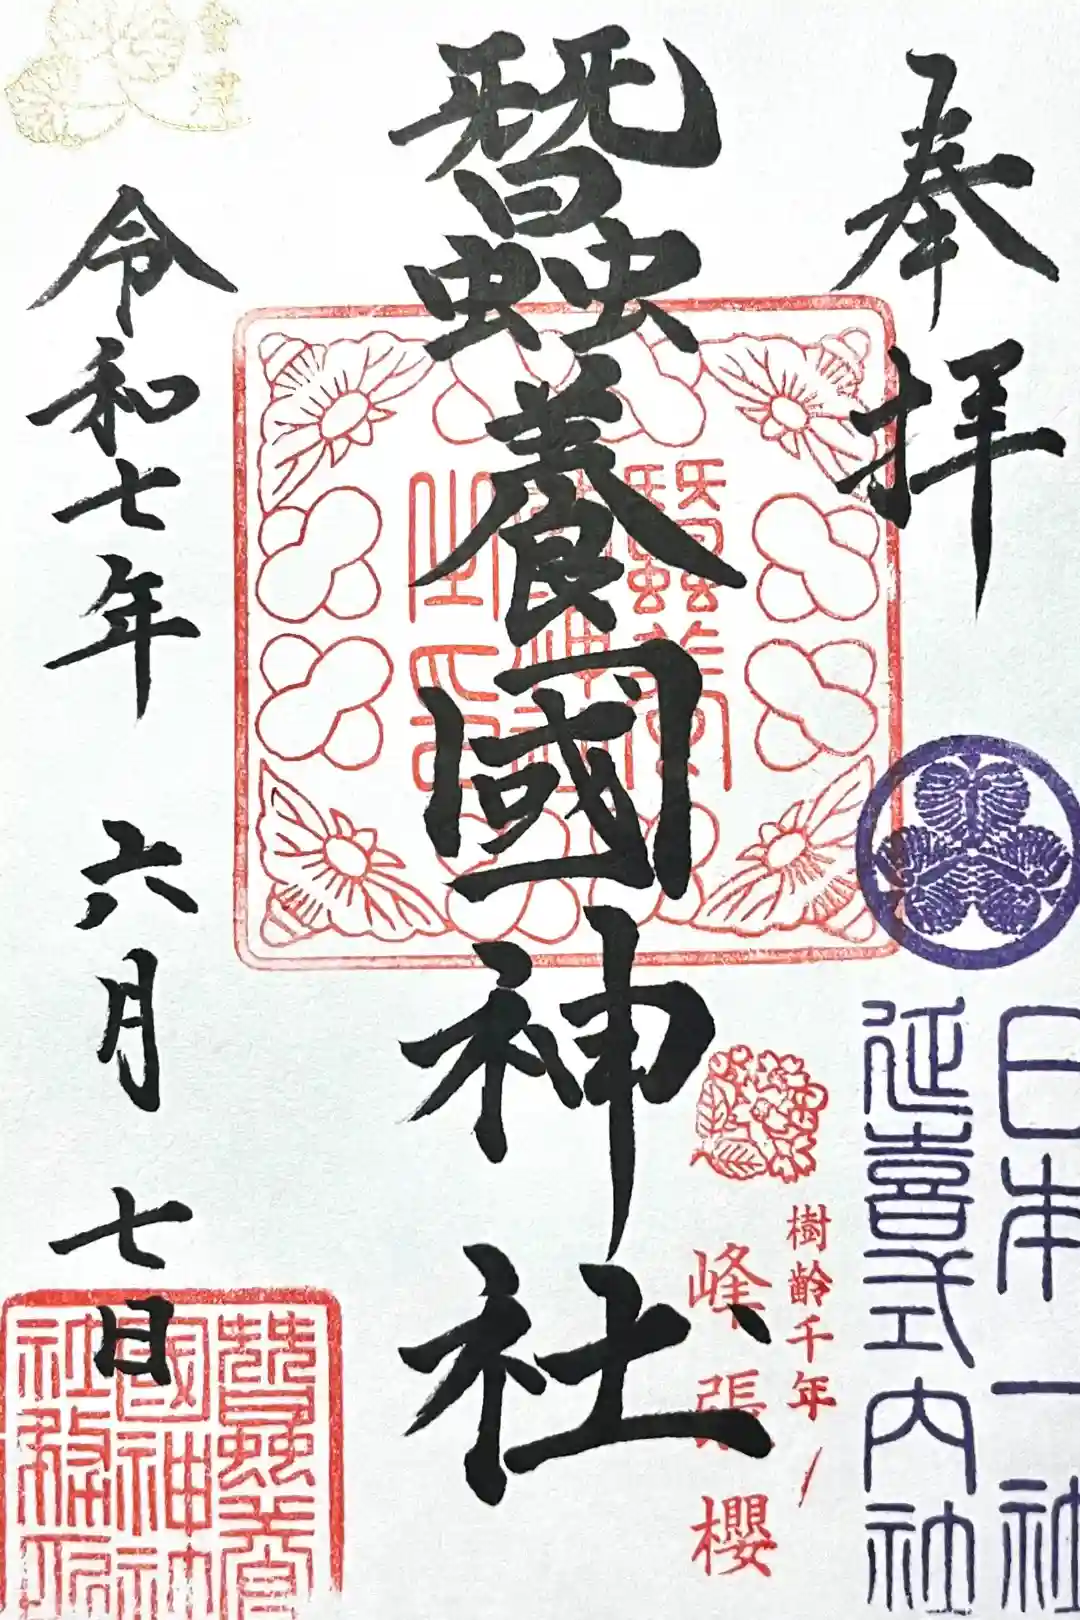 奉拝
日本一社
延喜式内社
樹齢千年ノ
峰張櫻
蠶養國神社
蠶養國神社之印
令和七年 六月 七日
蠶養國神社務所